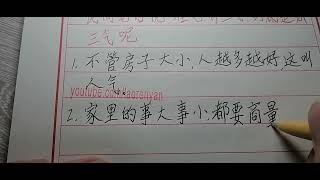 三气呢
1. 不管房子大小,人越多越好这叫
人气。
youtube.com/laorenyan
2. 家里的事大事小都要商量